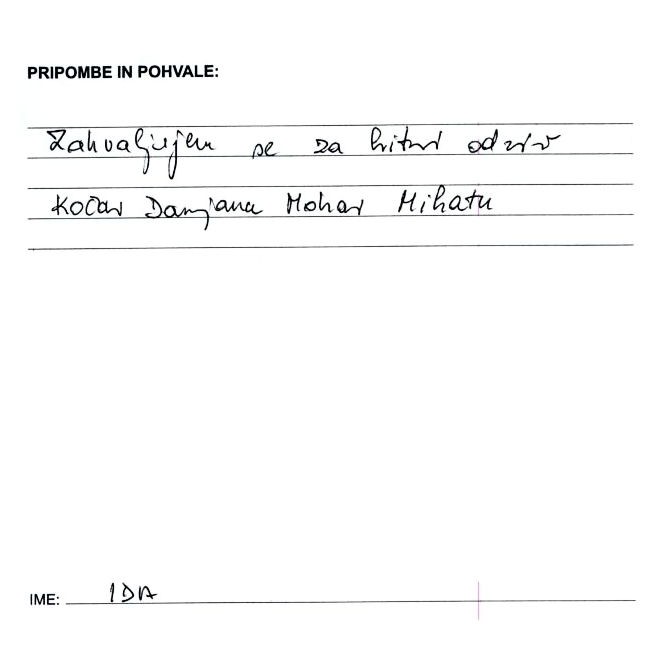 PRIPOMBE IN POHVALE:
Zahvaljujem se za hitri odziv
Kočar Damjana Mohar Mihatu
IME: IDA